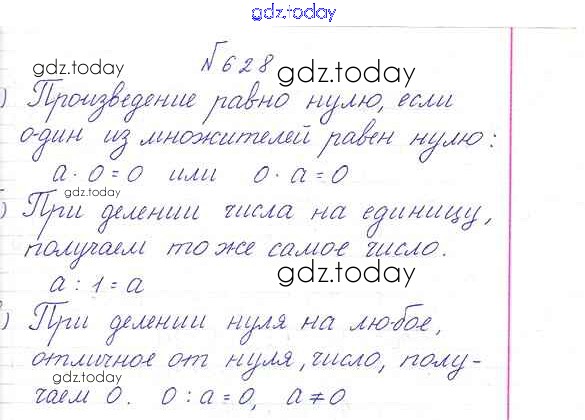 gdz.today
№628
gdz.today gdz.today
) Произведение равно нулю, если
один из множителей равен нулю:
a · 0 = 0 или 0 · a = 0
gdz.today
) При делении числа на единицу,
получаем то же самое число.
gdz.today
a : 1 = a
) При делении нуля на любое,
отличное от нуля, число, полу-
gdz.today
чаем 0. 0 : a = 0, a ≠ 0